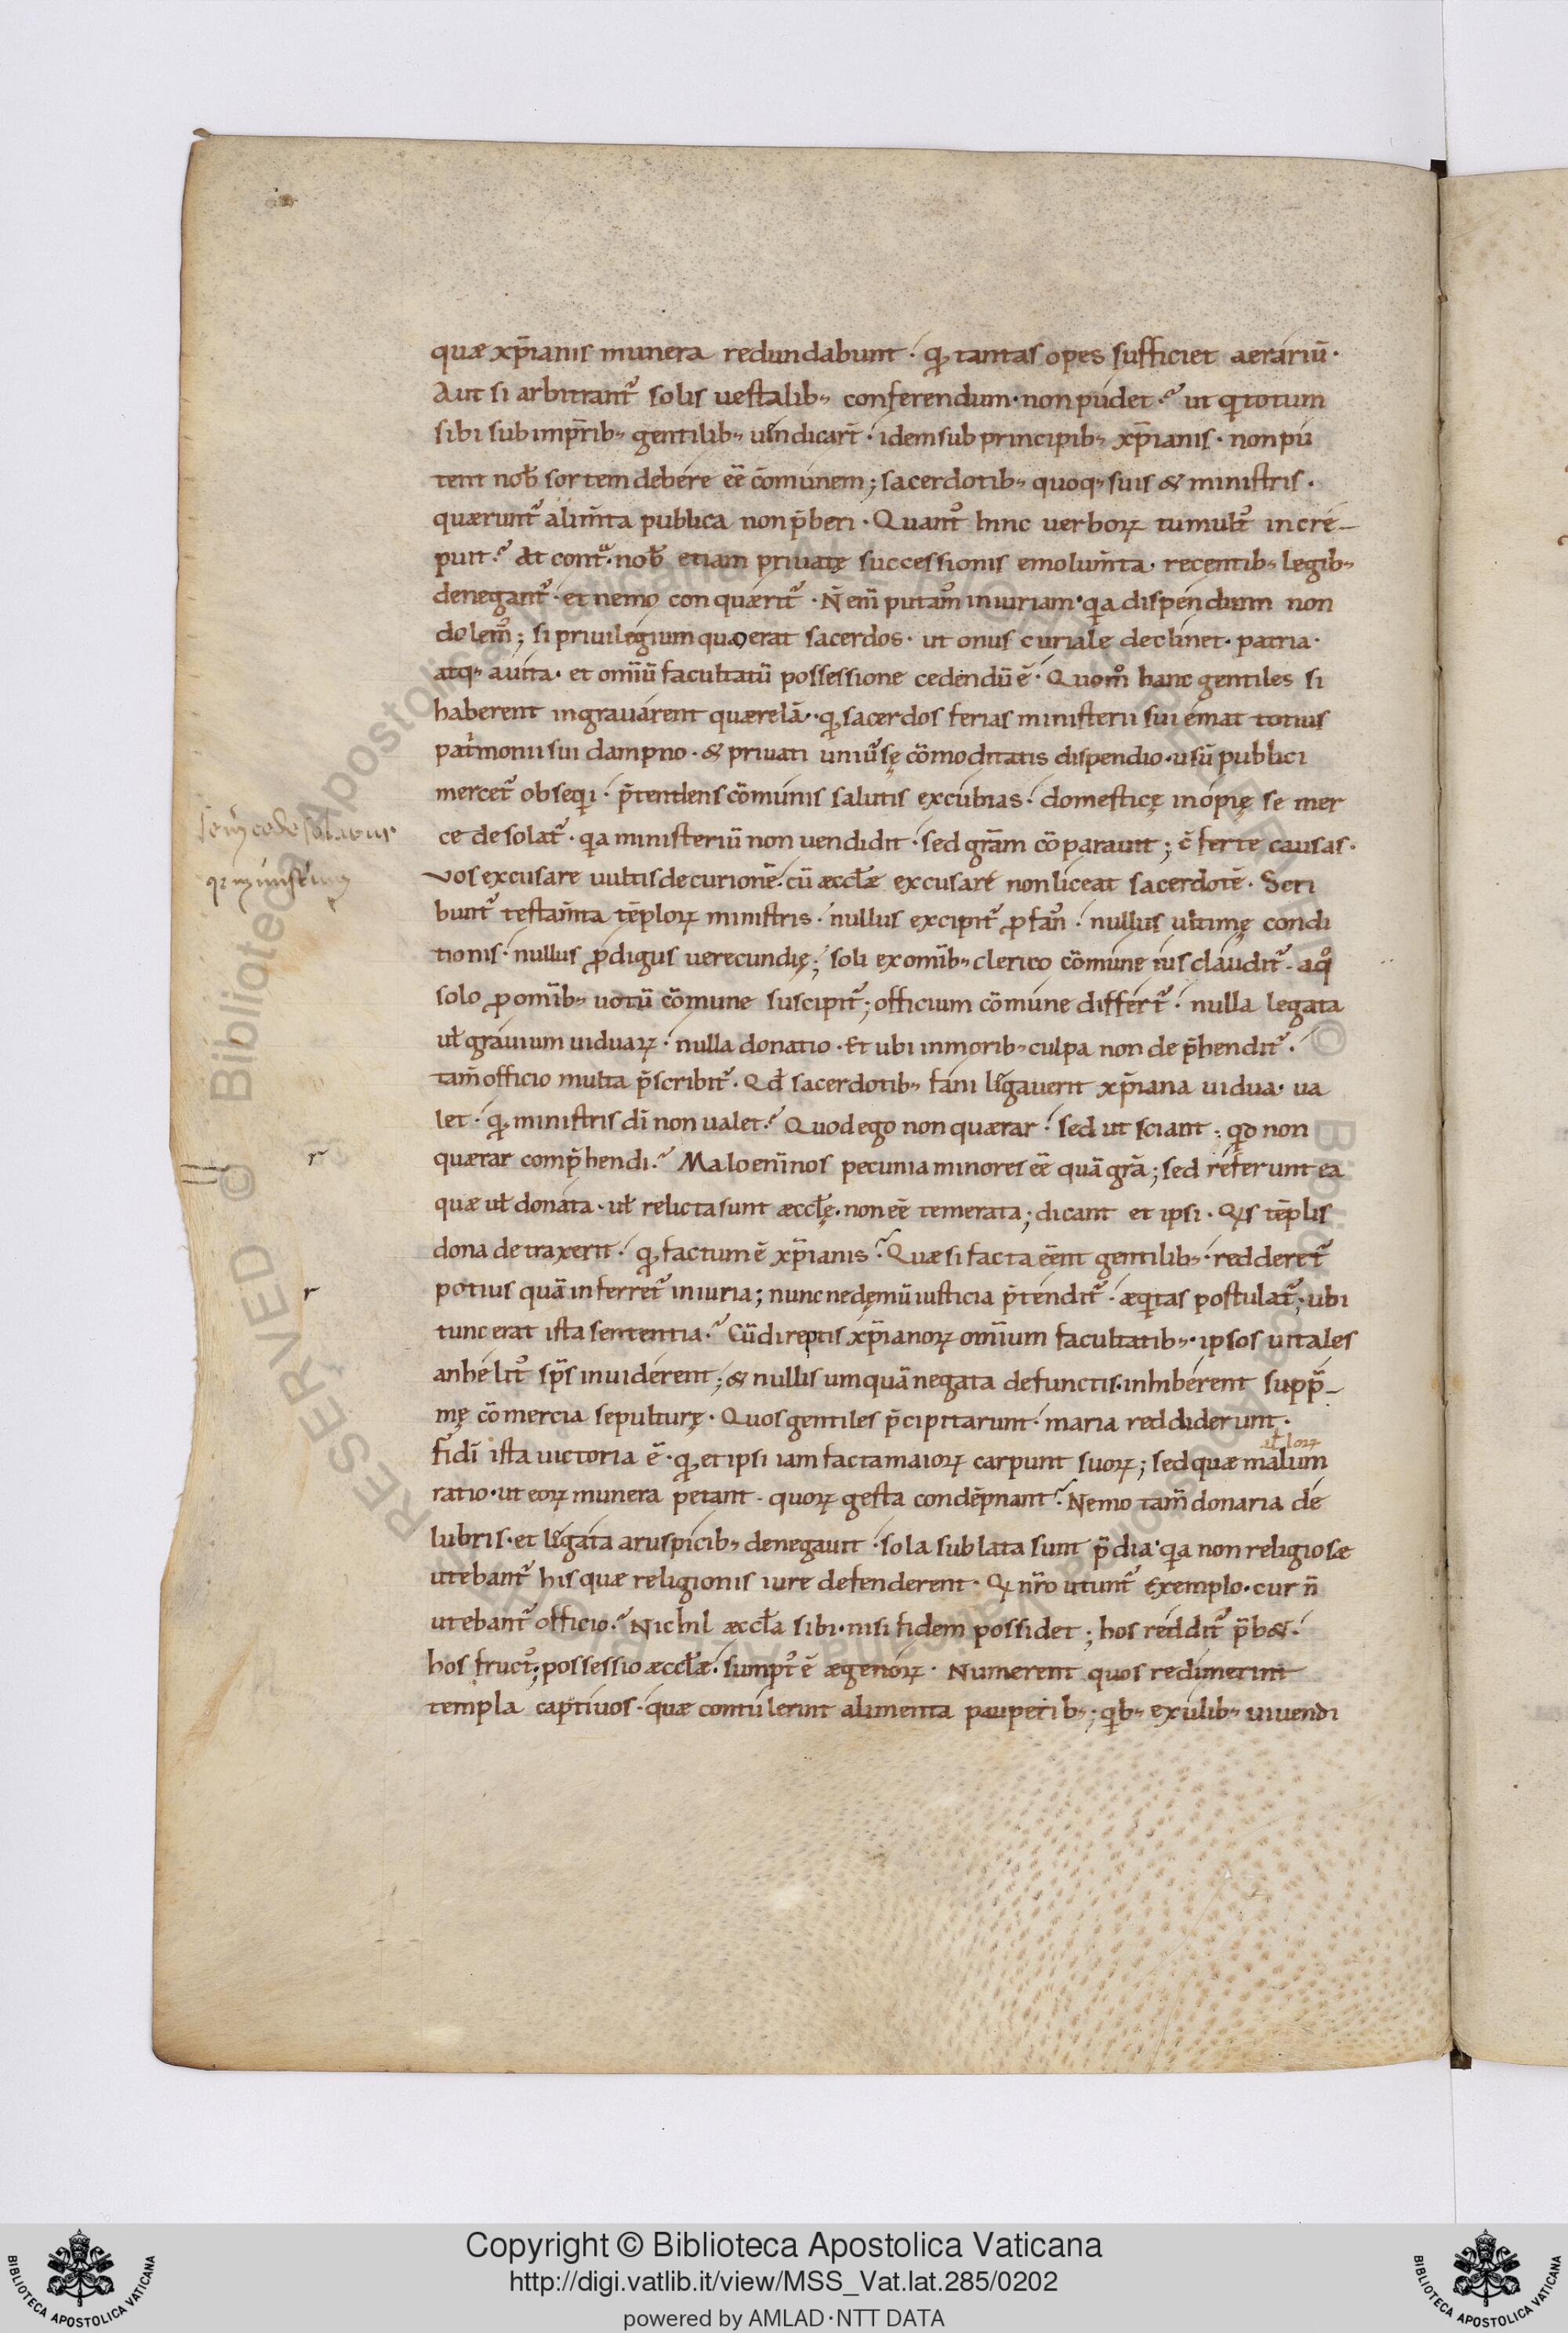 quæ xp̄ianis munera redundabunt · q̨ tantas opes sufficiet aerariū ·
Aut si arbitrant᷑ solis uestalib; conferendum · non pudet? ut q totum
sibi sub imp̄rib; gentilib; uindicar̄t · idem sub principib; xp̄ianis · non pu
tent nob̄ sortem debere ēē cōmunem; sacerdotib; quoq; suis & ministris ·
quærunt᷑ alim̄ta publica non p̄beri · Quant᷒ hinc uerboꝝ tumult᷒ incre-
puit? At contᷓ · nob̄ etiam priuatę successionis emolum̄ta · recentib; legib;
denegant᷑ · et nemo conquærit᷑ · N̄ enī putam᷒ iniuriam · qa dispendium non
dolem᷒; si priuilegium quærat sacerdos · ut onus curiale declinet · patria ·
atq; auita · et omīū facultatū possessione cedendū ē · Quom̊ hanc gentiles si
haberent ingrauarent quærelā · q̨ sacerdos ferias ministerii sui emat totius
pat̓monii sui dampno · & priuati uniu᷑sę cōmoditatis dispendio · usū publici
mercet᷑ obseqi · p̄tendens cōmunis salutis excubias · domesticę inopię se mer
ce desolat᷑ · qa ministeriū non uendidit · sed grām cōparauit; c̄ferte causas ·
Vos excusare uultis decurionē · cū æccl̄æ excusare non liceat sacerdotē · Scri
bunt᷑ testam̄ta tēploꝝ ministris · nullus excipit᷑ ꝓfan᷒ · nullus ultimę condi
tionis · nullus ꝓdigus uerecundię; soli ex omīb; clerico cōmune ius claudit᷑ · a qͦ
solo ꝓ omīb; uotū cōmune suscipit᷑; officium cōmune differt᷑ · nulla legata
ul̄ grauium uiduaꝝ · nulla donatio · Et ubi in morib; culpa non dep̄hendit᷑ ·
tam̄ officio multa p̄scribit᷑ · Qd̄ sacerdotib; fani ligauerit xp̄iana uidua · ua
let · q̨ ministris dī non ualet? Quod ego non quærar · sed ut sciant · qd non
quærar comp̄hendi? Malo enī nos pecunia minores ēē quā grā; sed referunt ea
quæ ul̄ donata · ul̄ relicta sunt æccl̄ę · non ēē temerata; dicant et ipsi · Qis tēplis
dona detraxerit · q̨ factum ē xp̄ianis? Quæ si facta ēēnt gentilib; · redderet᷑
potius quā inferret᷑ iniuria; nunc nedęmū iusticia p̄tendit᷑ · æqitas postulat᷑; ubi
tunc erat ista sententia? Cū direptis xp̄ianoꝝ omīum facultatib; · ipsos uitales
anhelit᷒ sp̄s inuiderent; & nullis umquā negata defunctis · inhiberent supp̄-
mę cōmercia sepulturę · Quos gentiles p̄cipitarunt · maria reddiderunt ·
fidī ista uictoria ē · q̨ et ipsi iam facta maioꝝ carpunt suoꝝ; sed quæ malum
ul̄ loꝝ
ratio · ut eoꝝ munera petant · quoꝝ gesta condēpnant? Nemo tam̄ donaria de
lubris · et ligata aruspicib; denegauit · sola sublata sunt p̄dia · qa non religiosæ
utebant᷑ his quæ religionis iure defenderent · Qi nr̄o utunt᷑ exemplo · cur n̄
utebant᷑ officio? Nichil æccl̄a sibi · nisi fidem possidet; hos reddit᷑ p̄b& ·
hos fruct᷒; possessio æccl̄æ · sumpt᷒ ē ægenoꝝ · Numerent quos redimerint
templa captiuos · quæ contulerint alimenta pauperib; ; qb; exulib; uiuendi
r
r
Copyright © Biblioteca Apostolica Vaticana
http://digi.vatlib.it/view/MSS_Vat.lat.285/0202
powered by AMLAD·NTT DATA
BIBLIOTECA APOSTOLICA VATICANA
BIBLIOTECA APOSTOLICA VATICANA